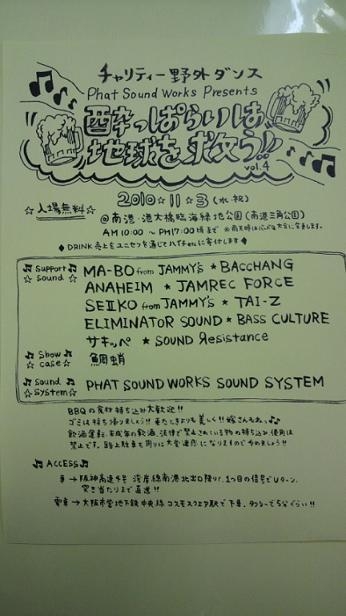 チャリティー野外ダンス
Phat Sound Works Presents
酔っぱらいは、
地球を、救う!!
vol.4
☆入場無料☆
2010☆11☆3(水・祝)
@南港・港大橋臨海緑地公園(南港三角公園)
AM10:00～PM17:00頃まで
◆DRINK売上をユニセフを通じてハイチetcに寄付します◆
♫Support♫
☆Sound☆
MA-BO from JAMMY's ★ BACCHANG
ANAHEIM ★ JAMREC FORCE
SEIIKO from JAMMY'S ★ TAI-Z
ELIMINATOR SOUND ★ BASS CULTURE
サキッペ ★ SOUND Яesistance
♫Show♫
☆case☆
♫Sound♫
☆System☆
PHAT SOUND WORKS SOUND SYSTEM
BBQの食材持ち込み大歓迎!!
ゴミは持ち帰りましょう!!来たときよりも美しく!!
飲酒運転、未成年の飲酒、法律で禁止されている物の持ち込み・使用は
禁止です。
♫ACCESS♫
車→阪神高速4号 湾岸線南港北出口降り、1つ目の信号でUターン、
突き当たりまで直進!!
電車→大阪市営地下鉄中央線 コスモスクエア駅で下車、タクシーで5分ぐらい!!